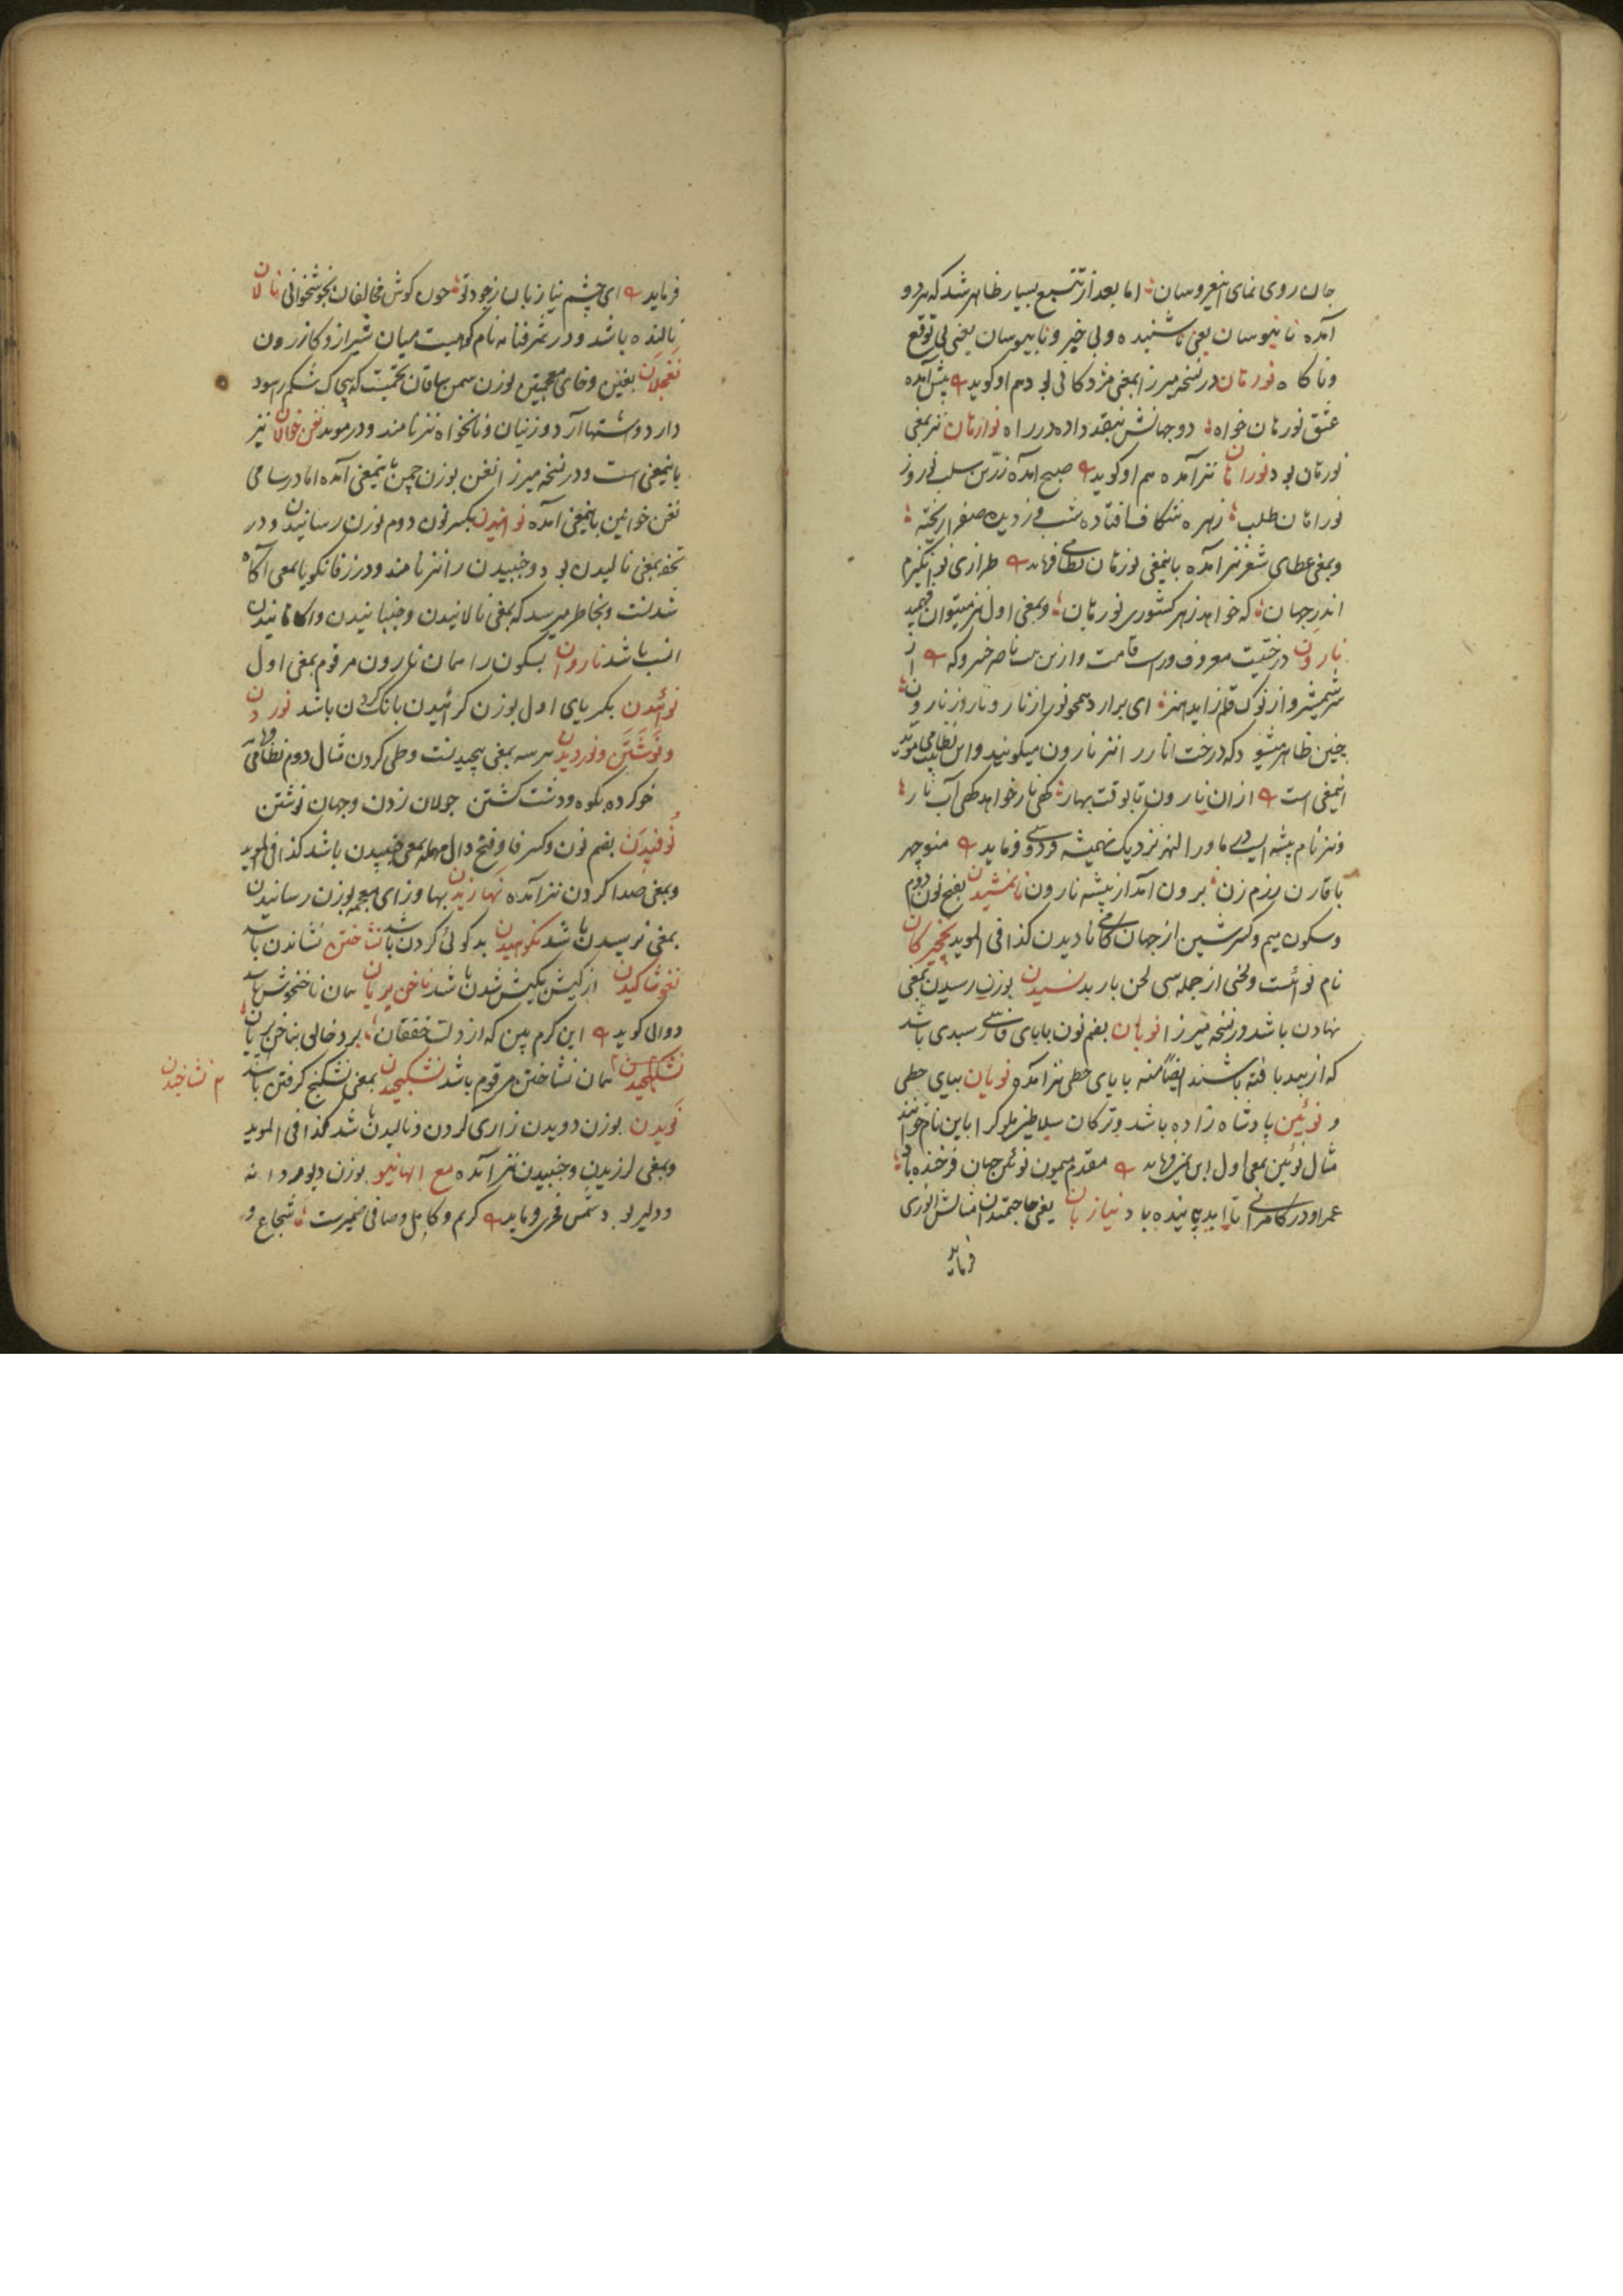 جان روی نمای ای نیوسان اما بعد از تتبع بسیار ظاهر شد که هر دو
آمده نا نیوسان یعنی ناشنیده و بی خبر و نابیوسان یعنی بی توقع
و ناکاه نورهان در نسخه میرزا بمعنی مژدکانی بود هم او کوید پیش آمده
عشق نورهان خواه دو جهانش بنقد داده در راه نوارهان نیز بمعنی
نورهان بود نوراهان نیز آمده هم او کوید صبح آمده زرین سلب نوروز
نوراهان طلب زهره شکاف افتاده شب وز دیده صفرا ریخته
و بمعنی عطای شعر نیز آمده باینمعنی نورهان نظامی فرماید طرازی نو انکیزم
اندر جهان که خواهد ز هر کشوری نورهان و بمعنی اول نیز میتوان فهمید
نارون درختیست معروف و راست قامت و ازین بیت ناصر خسرو که از
سر شمشیر و از نوک قلم زاید هنر ای برادر همچو نور از نار و نار از نارون
چنین ظاهر میشود که درخت انار را نیز نارون میکویند و این بیت نظامی موید
اینمعنی است از ان نارون تا بوقت بهار کهی نار خواهد کهی آب نار
و نیز نام بیشه ایست در ماوراالنهر نزدیک نمیشه فردوسی فرماید منوچهر
با قارن رزم زن برون آمد از بیشه نارون نانمشیدن بفتح نون دوم
و سکون میم و کسر شین از جهان کامی نادیدن کذا فی الموید نخجیرکان
نام نوائست و لحنی از جمله سی لحن باربد نسیدن بوزن رسیدن بمعنی
نهادن باشد در نسخه میرزا نوبان بضم نون با بای فارسی سبدی باشد
که از بید بافته باشند ایضا منه با یای حطی نیز آمده نویان بیای حطی
و نوئین پادشاه زاده باشد و ترکان سلاطین ملوک را باین نام خوانند
مثال نوئین بمعنی اول ابن یمین فرماید مقدم میمون نوئین جهان فرخنده باد
عمر او در کامرانی تا ابد پاینده باد نیازیان یعنی حاجتمندان مثالش انوری
فرماید
فرماید ای چشم نیازیان ز جود تو چون کوش مخالفان بخوشخوانی نالان
نالنده باشد و در شرفنامه نام کوهیست میان شیراز و کازرون
نغخلان بغین و خای معجمتین بوزن همن ساقان تخمیست که پی اک شکم را سود
دارد و شتها آرد و زنیان و نانخواه نیز نامند و در موید نغن خوالان نیز
باینمعنی است و در نسخه میرزا نغن بوزن چمن باینمعنی آمده اما در سامی
نغن خوالین باینمعنی آمده نوانیدن بکسر نون دوم بوزن رسانیدن و در
تحفه بمعنی نالیدن بود و جنبیدن را نیز نامند و در زفانکویا بمعنی آکاه
شدنست و بخاطر میرسد که بمعنی نالانیدن و جنبانیدن و آکاهانیدن
انسب باشد ناروان بسکون را همان نارون مرقوم بمعنی اول
نوئیدن بکسر یای اول بوزن کرائیدن بانک کردن باشد نوردن
و نوشتن و نوردیدن هر سه بمعنی پیچیدنست و طی کردن مثال دوم نظامی فرماید
خو کرده بکوه و دشت کشتن جولان زدن و جهان نوشتن
نوفیدن بضم نون و کسر فا و فتح دال مهمله بمعنی جنبیدن باشد کذا فی الموید
و بمعنی صدا کردن نیز آمده نهازیدن بها و زای معجمه بوزن رسانیدن
بمعنی ترسیدن باشد نکوهیدن بد کوئی کردن باشد نشاختن نشاندن باشد
نغوشاکیدن از کیش بکیش شدن باشد ناخن پریان همان ناخنخوش باشد
دوالی کوید این کرم بین که از دلت خفقان برد خالی بناخن پریان
نشکنجیدن همان نشاختن مرقوم باشد نشکنجیدن بمعنی نشکنج کرفتن باشد
م نشاخیدن
نویدن بوزن دویدن زاری کردن و نالیدن باشد کذا فی الموید
و بمعنی لرزیدن و جنبیدن نیز آمده مع الها نیو بوزن دیو مردانه
و دلیر بود شمس فخری فرماید کریم و کامل و صافی ضمیرست شجاع و